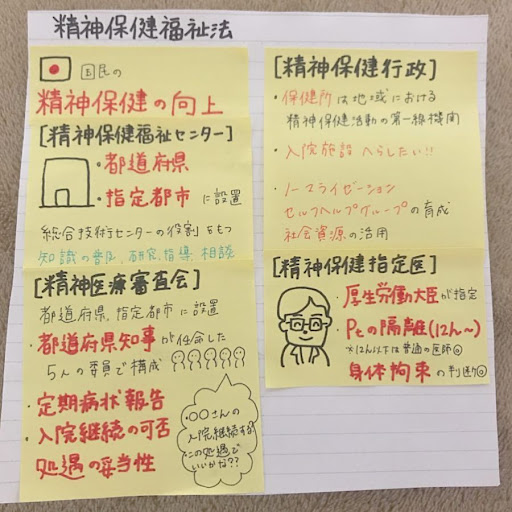 精神保健福祉法
国民の
精神保健の向上
[精神保健福祉センター]
・都道府県
・指定都市 に設置
総合技術センターの役割をもつ
知識の普及、研究、指導、相談
[精神医療審査会]
都道府県、指定都市に設置
・都道府県知事が任命した
5人の委員で構成
・定期病状報告
・入院継続の可否
処遇の妥当性
・〇〇さんの
入院継続する?
この処遇で
いいかな??
[精神保健行政]
・保健所は地域における
精神保健活動の第一線機関
・入院施設へらしたい!!
・ノーマライゼーション
セルフヘルプグループの育成
社会資源の活用
[精神保健指定医]
・厚生労働大臣が指定
・Ptの隔離(12h〜)
※12h以下は普通の医師◎
身体拘束の判断◎